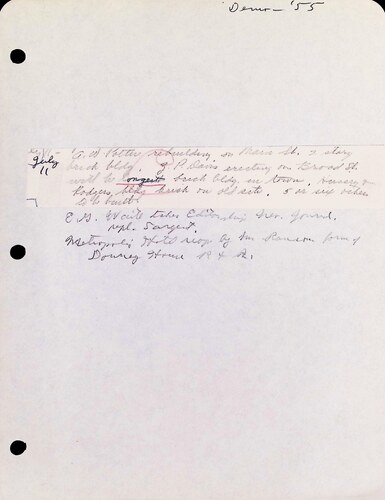 Demo - '55
July 11
A. W. Potter rebuilding on Main St. 2 story
brick bldg. J. P. Davis erecting on Broad St.
will be longest brick bldg in town.
Rodgers, bldg brick on old site. 5 or six others
to be built
E. G. Waite takes Editorship Nev Journal,
repl. Sargent.
Metropolis Hotel reop by Wm Ranson form of
Downey House